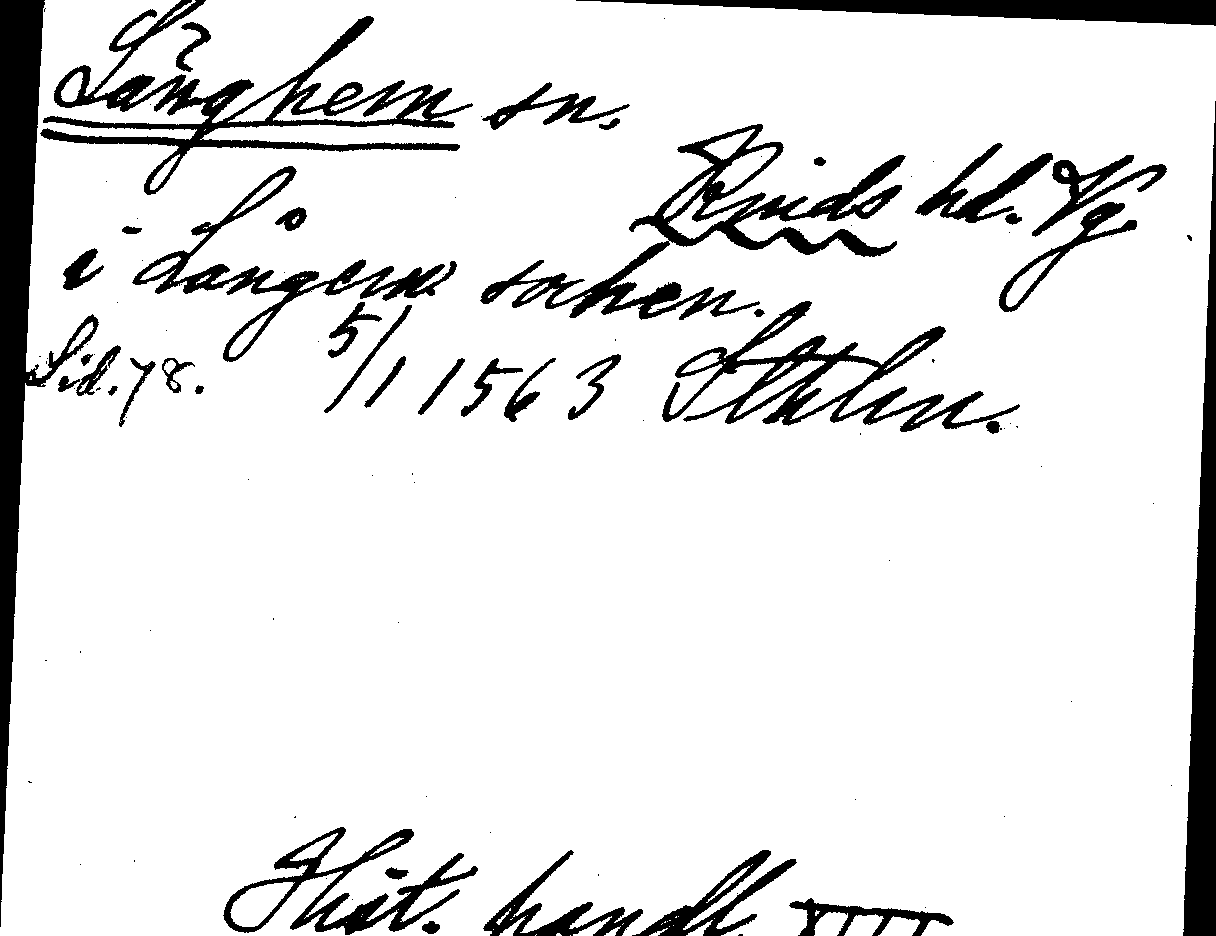 Långhem sn.
Kinds hd. Vg.
i Långem sochen.
Sid. 78. 5/1 1563 Sthlm.
Hist. handl. XIII